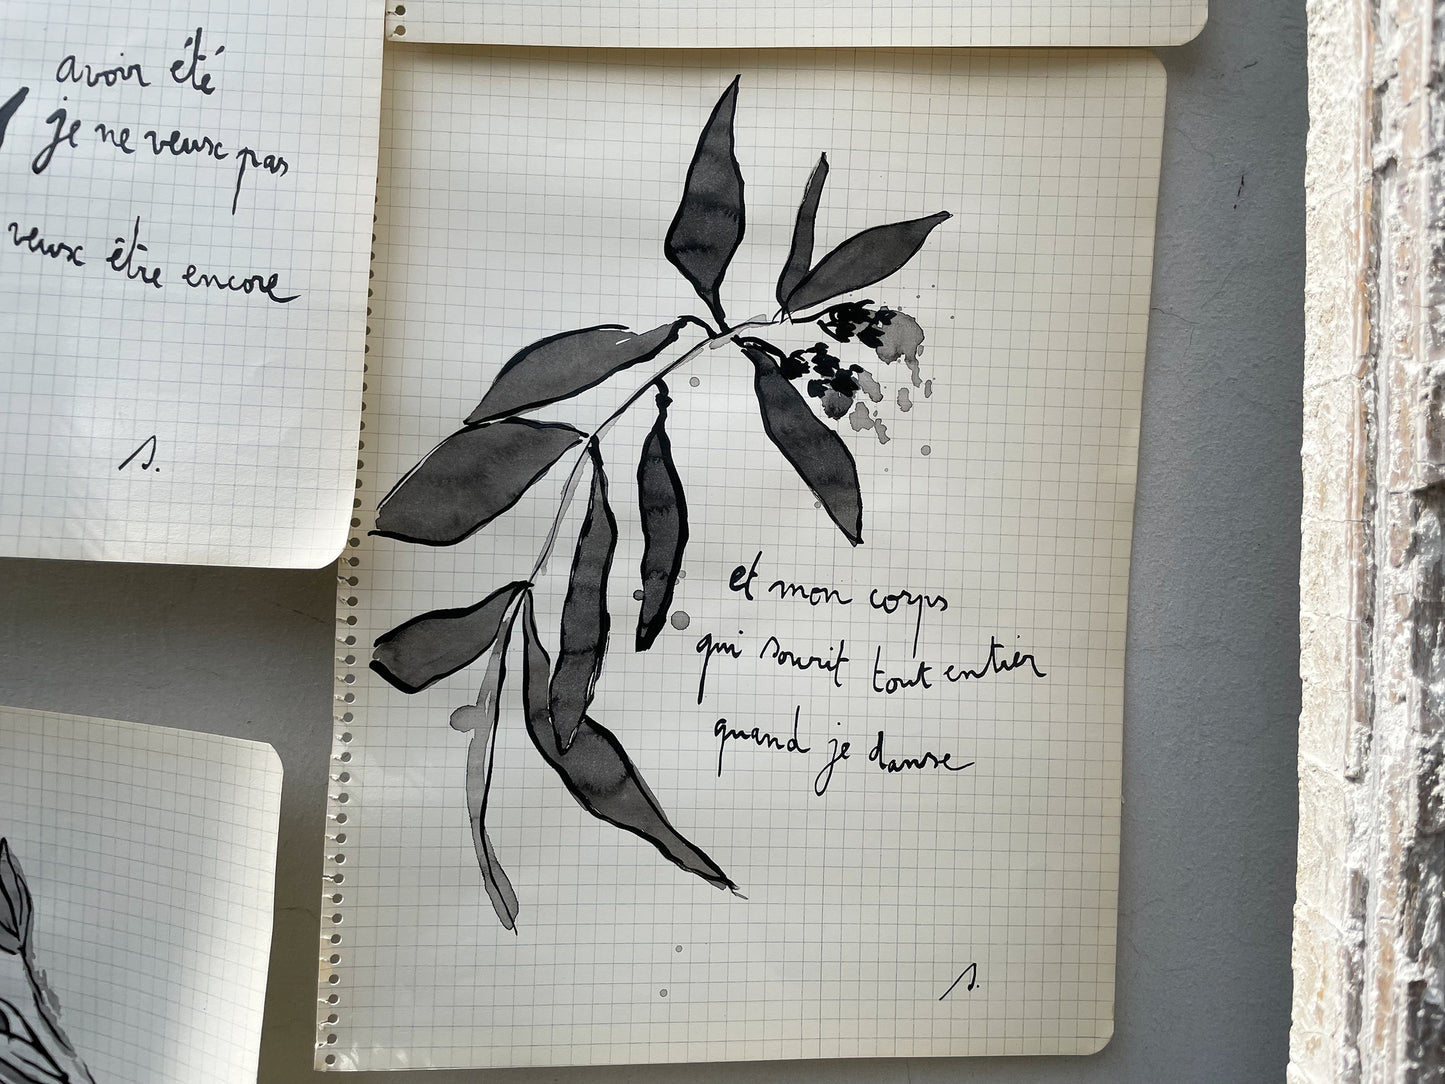 avoir été
je ne veux pas
veux être encore
s.
et mon corps
qui sourit tout entier
quand je danse
s.